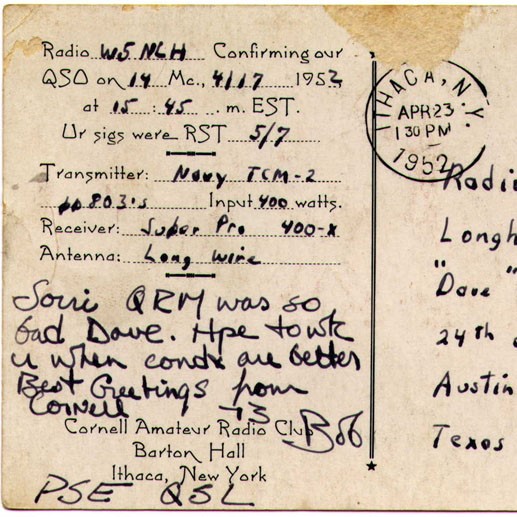 Radio W5NLH Confirming our
QSO on 14 Mc., 4/17 1952
at 15:45 .m. EST.
Ur sigs were RST 5/7
Transmitter: Navy TCM-2
pp 803's Input 400 watts.
Receiver: Super Pro 400-X
Antenna: Long Wire
Sorri QRM was so
bad Dave. Hpe to wk
u when condx are better
Best Greetings from
Cornell 73
Bob
Cornell Amateur Radio Club
Barton Hall
Ithaca, New York
PSE QSL
ITHACA, N.Y.
APR 23
1 30 PM
1952
Radi
Longh
"Dave"
24th
Austin
Texas